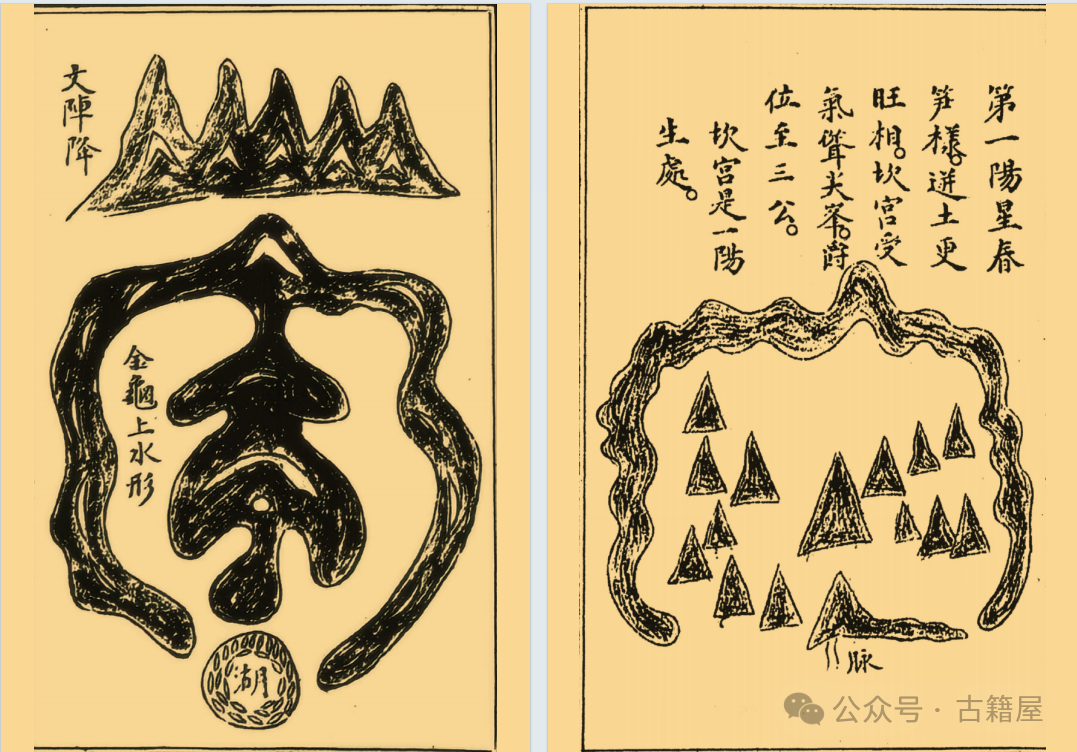 第一陽星春
笋樣。迸土更
旺相。坎宮受
氣聳尖峯。爵
位至三公。
坎宮是一陽
生處。
脉
陣降
金龜上水形
湖
公众号 · 古籍屋